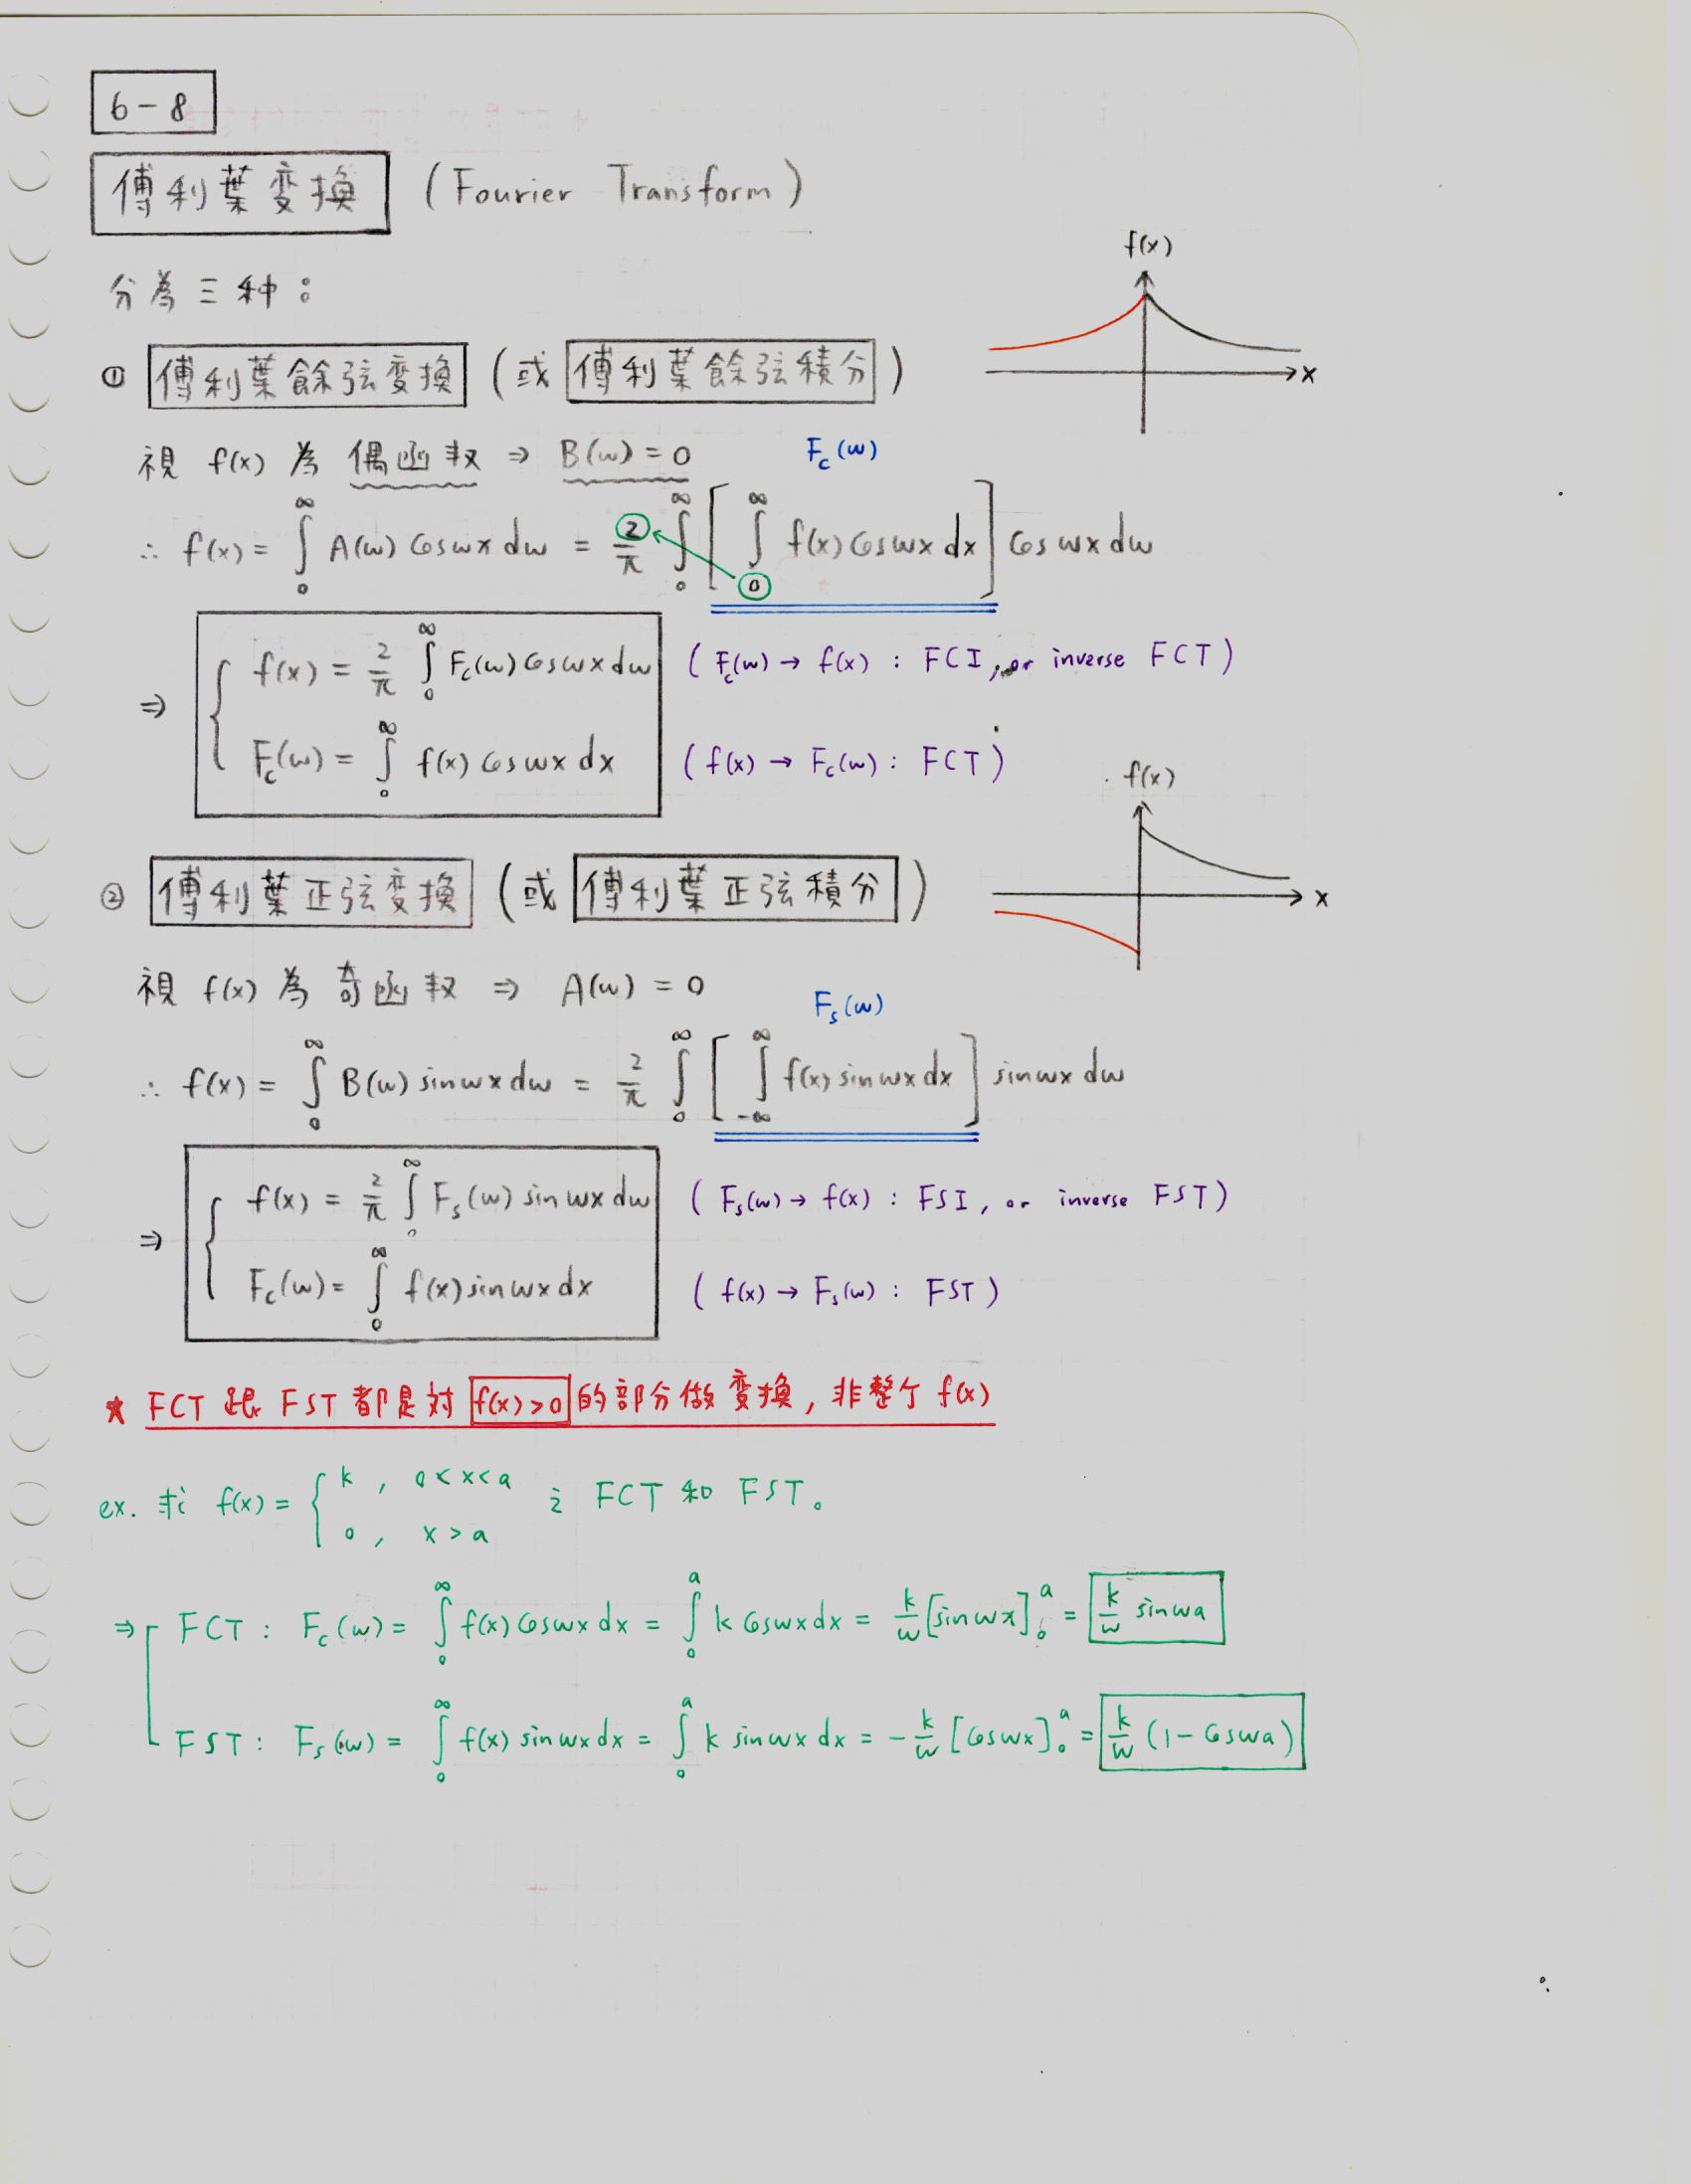 6-8
傅利葉变换 (Fourier Transform)
分為三种：
f(x)
x
① 傅利葉餘弦变换 (或 傅利葉餘弦積分)
視 f(x) 為 偶函数 ⇒ B(w) = 0
F_c(w)
∴ f(x) = ∫_0^∞ A(w) cos wx dw = 2/π ∫_0^∞ [ ∫_0^∞ f(x) cos wx dx ] cos wx dw
⇒ { f(x) = 2/π ∫_0^∞ F_c(w) cos wx dw (F_c(w) → f(x) : FCI, or inverse FCT)
F_c(w) = ∫_0^∞ f(x) cos wx dx (f(x) → F_c(w) : FCT)
f(x)
x
② 傅利葉正弦变换 (或 傅利葉正弦積分)
視 f(x) 為 奇函数 ⇒ A(w) = 0
F_s(w)
∴ f(x) = ∫_0^∞ B(w) sin wx dw = 2/π ∫_0^∞ [ ∫_{-∞}^∞ f(x) sin wx dx ] sin wx dw
⇒ { f(x) = 2/π ∫_0^∞ F_s(w) sin wx dw (F_s(w) → f(x) : FSI, or inverse FST)
F_c(w) = ∫_0^∞ f(x) sin wx dx (f(x) → F_s(w) : FST)
★ FCT 跟 FST 都是对 f(x)>0 的部分做变换, 非整个 f(x)
ex. 求 f(x) = { k , 0<x<a
0 , x>a 之 FCT 和 FST。
⇒ FCT : F_c(w) = ∫_0^∞ f(x) cos wx dx = ∫_0^a k cos wx dx = k/w [sin wx]_0^a = k/w sin wa
FST : F_s(w) = ∫_0^∞ f(x) sin wx dx = ∫_0^a k sin wx dx = - k/w [cos wx]_0^a = k/w (1 - cos wa)